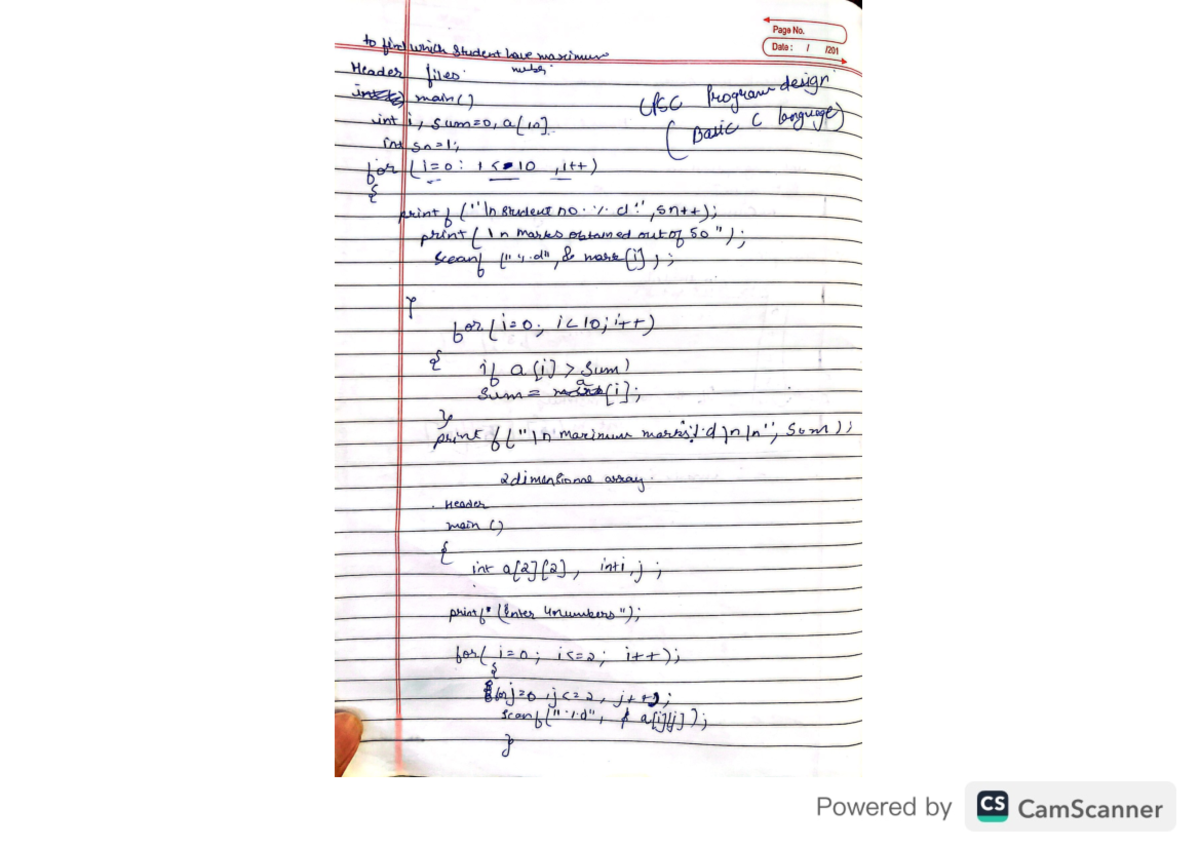 Page No.
Date : / /201
to find which Student have maximum
Header files
main()
int i, sum=0, a[10]
int sn=1;
for (i=0: i<=10 ,i++)
{
printf ("\n Student no. %d:", sn++);
print( \n marks obtained out of 50 ");
scanf ("%d", & mark[i] );
}
for (i=0; i<10; i++)
{ if a[i] > Sum)
Sum = a[i];
}
printf ("\n maximum marks: %d \n \n", Sum );
CPSC Program design
( Basic C language)
2 dimensional array.
Header
main ()
{
int a[2][2], int i, j ;
printf" (Enter 4numbers");
for( i=0; i<=2; i++);
{
for j=0 ,j<=2, j++);
scanf("%d", a[i][j]);
}
Powered by CS CamScanner